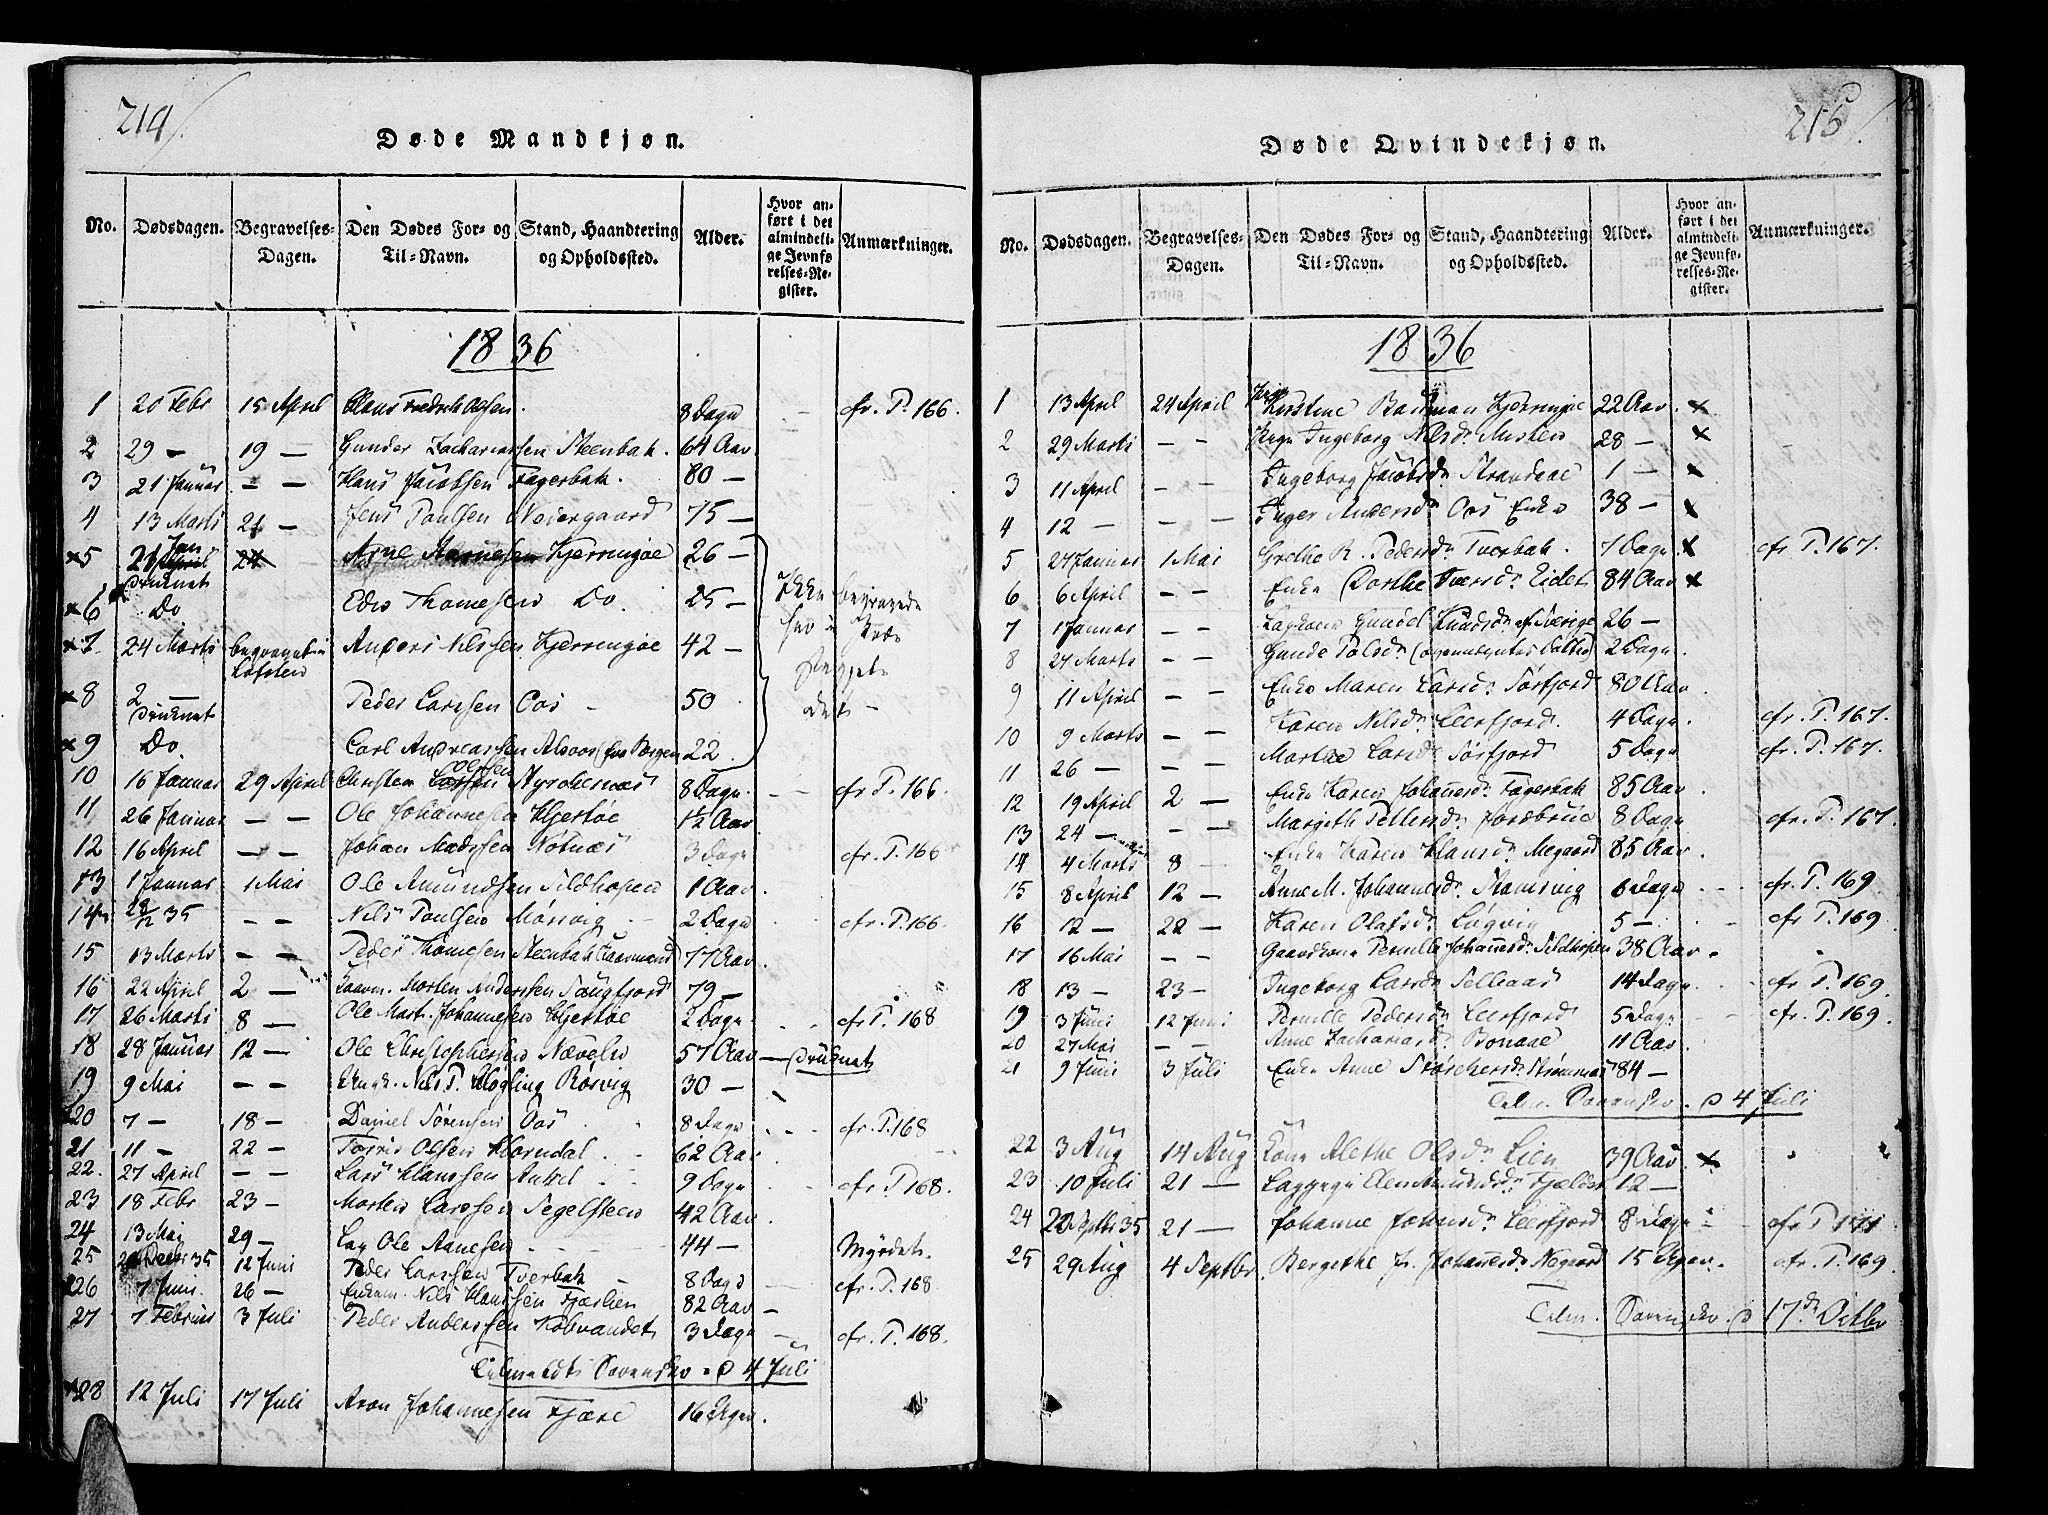 214/
Døde Mandkjøn.
No. Dødsdagen. Begravelses-Dagen. Den Dødes For- og Til-Navn. Stand, Haandtering og Opholdssted. Alder. Hvor anført i det almindelige Jevnførelses-Register. Anmærkninger.
1836
1 20 Febr 15 April Claus Fredrik Olsen. 8 Dage cfr. P. 166.
2 29 — 19 — Gunder Zachariassen Steenbak. 64 Aar
3 21 Januar — — Hans Jacobsen Fagerbak. 80 —
4 13 Marts 21 — Jens Paulsen Nedergaard 75 —
x5 21 Jan April 24 Arne Kjerringøe 26 —
druknet
x6 Do Thomesen Do. 25 — Ikke begravede
x7 24 Marts begravet i Lofoten Anders Nilssen Kjerringøe 42 —
x8 2 druknet Peder Larssen Oos 50
x9 Do. Carl Andreassen 22
10 16 Januar 29 April Christen Olssen 8 Dage cfr P. 166.
11 26 Januar — — Ole Johannesen Hjertøe 1½ Aar
12 16 April — — Johan Madssen Notnæs 3 Dage cfr. P. 166
13 1 Januar 1 Mai Ole Amundsen Sildhopen 1 Aar
14 28/12 35 — — Nils Paulsen Mørsvig 2 Dage cfr. P. 166.
15 13 Marts — — Peder Thomesen Steenbak 77 Aar
16 22 April 2 — Morten Anderssen Saugfjord 79 —
17 26 Marts 8 — Ole Mart. Johannesen Hjertøe 2 Dage cfr P. 168
18 28 Januar 12 — Ole Christophersen 57 Aar — druknet
19 9 Mai — — Nils P. Røsvig 30 —
20 7 — 18 — Daniel Sørensen Oos 8 Dage cfr. P. 168
21 11 — 22 — Torris Olsen Horndal 62 Aar
22. 27 April — — Lars Hanssen 9 Dage cfr P. 168.
23 18 Febr 23 — Morten Larssen Segelsteen 42 Aar
24 13 Mai 29 — Lap Ole Aanesen 44 — Myrdet.
25 Decbr 35 12 Juni Peder Larssen Tverbak 8 Dage cfr P. 168.
26 7 Juni. 26 — Nils Hanssen Fjærlien 82 Aar —
27 7 Februar 3 Juli Peder Anderssen Kobvandet 3 Dage cfr. P. 168.
4 Juli
28 12 Juli 17 Juli Aron Johannesen Fjære 16 Uger.
215/
Døde Qvindekjøn.
No. Dødsdagen. Begravelses-Dagen. Den Dødes For- og Til-Navn. Stand, Haandtering og Opholdssted. Alder. Hvor anført i det almindelige Jevnførelses-Register. Anmærkninger.
1836
1 13 April 24 April Kirstine Kjerringøe 22 Aar x
2 29 Marts — — Ingeborg Nilsd. 28 — x
3 11 April — — Ingeborg Jacobsd. Strandaae 1 — x
4 12 — — — Inger Andersd. Oos Enke 38 — x
5 27 Januar 1 Mai Grethe R. Pedersd. Tverbak. 7 Dage x cfr P. 167.
6 6 April — — Enke Dorthe Iversd. Eidet 84 Aar x
7 1 Januar — — Gundel Knudsd. af Sverige 26 —
8 27 Marts — — Gunde 2 Dage
9 11 April — — Enke Maren Larsd. Sørfjord 80 Aar
10 9 Marts — — Karen Nilsd. Leerfjord. 4 Dage. cfr. P. 167.
11 26 — Marthe Larsd. Sørfjord 5 Dage cfr. P. 167.
12 19 April 2 — Enke Karen Johannesd. Fagerbak 85 Aar
13 24 — — — Margith Pettersd. Jordbrue 8 Dage cfr. P. 167.
14 4 Marts 8 — Enke Karen Hansd. Megaard 85 Aar
15 8 April 12 — Anne M. Johannesd. Stamsvig 6 Dage cfr. P. 169.
16 12 — 22 — Karen Olafsd. Løgvig 5 — cfr P. 169.
17 16 Mai — — Gaardkone Pernille Johannesd. Sildhopen 38 Aar
18 13 — 23 — Ingeborg Larsd. 14 Dage cfr P. 169.
19 3 Juni 12 Juni Pernille Pedersd. Leerfjord 5 Dage cfr. P. 169.
20 27 Mai — — Anne Zachariasd. Bonaae 11 Aar
21 9 Juni 3 Juli Enke Anne Strømnæs 84 —
4 Juli
22 3 Aug 14 Aug Kone Alethe Olsd. Lien 39 Aar x
23 10 Juli 21 — Fjeldet 12 —
24 20 Septbr 35 21 — Johanne Johnsd. Leerfjord 8 Dage cfr P 171
25 29 Aug 4 Septbr. Bergithe Johannesd. 15 Uger. cfr. P. 169.
17de Octbr